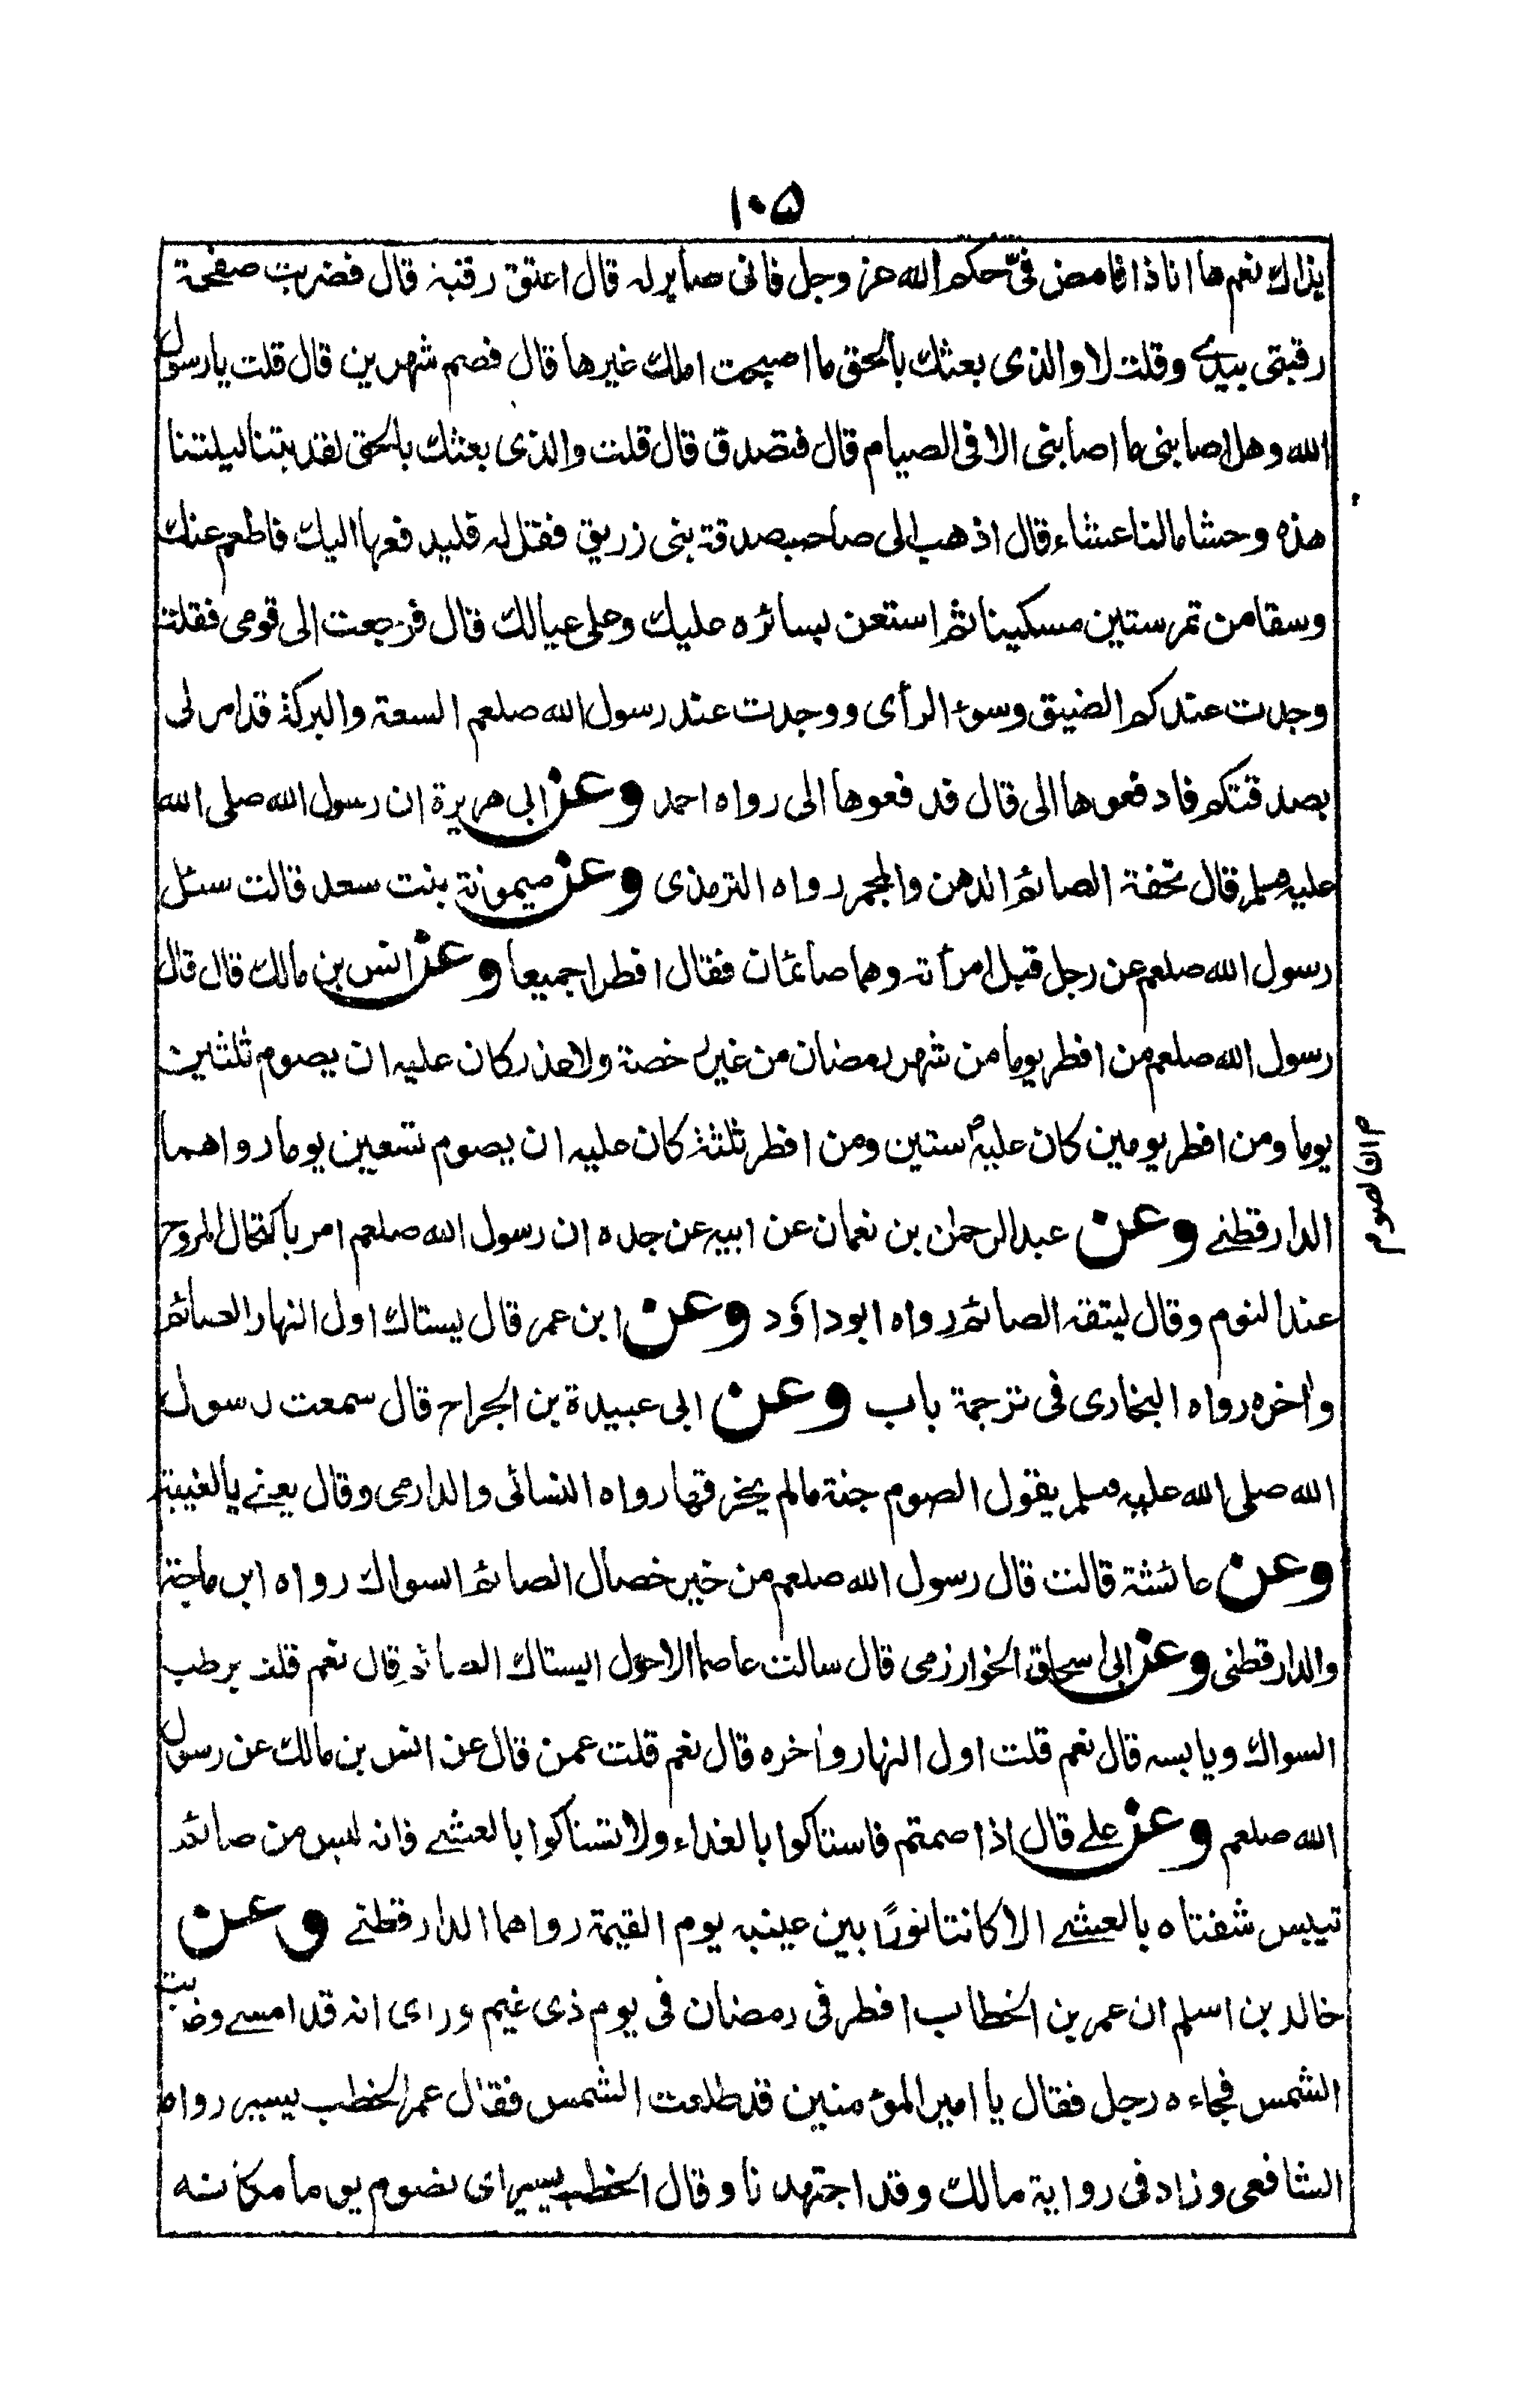 ١٠٥
بذاك نعم ها انا ذا فامض فیّ حكم الله عز وجل فانی صابر له قال اعتق رقبة قال فضربت صفحة
رقبتی بیدی وقلت لا والذی بعثك بالحق ما اصبحت املك غیرها قال فصم شهرین قال قلت یا رسول
الله وهل اصابنی ما اصابنی الا فی الصیام قال فتصدق قال قلت والذی بعثك بالحق لقد بتنا لیلتنا
هذه وحشا مالنا عشاء قال اذهب الی صاحب صدقة بنی زریق فقل له فلیدفعها الیك فاطعم عنك
وسقا من تمر ستین مسكینا ثم استعن بسائره علیك وعلی عیالك قال فرجعت الی قومی فقلت
وجدت عندكم الضیق وسوء الرأی ووجدت عند رسول الله صلعم السعة والبركة قد امر لی
بصدقتكم فادفعوها الی قال فدفعوها الی رواه احمد وعن ابی هریرة ان رسول الله صلی الله
علیه وسلم قال تحفة الصائم الدهن والمجمر رواه الترمذی وعن میمونة بنت سعد قالت سئل
رسول الله صلعم عن رجل قبل امرأته وهما صائمان فقال افطرا جمیعا وعن انس بن مالك قال قال
رسول الله صلعم من افطر یوما من شهر رمضان من غیر رخصة ولا عذر كان علیه ان یصوم ثلثین
یوما ومن افطر یومین كان علیه ستین ومن افطر ثلثة كان علیه ان یصوم تسعین یوما رواهما
م ان یصوم
الدارقطنے وعن عبدالرحمٰن بن نعمان عن ابیه عن جده ان رسول الله صلعم امر باكتحال المروح
عند النوم وقال لیتقه الصائم رواه ابوداؤد وعن ابن عمر قال یستاك اول النهار الصائم
واٰخره رواه البخاری فی ترجمة باب وعن ابی عبیدة بن الجراح قال سمعت رسول
الله صلی الله علیه وسلم یقول الصوم جنة مالم یخرقها رواه النسائی والدارمی وقال یعنے بالغیبة
وعن عائشة قالت قال رسول الله صلعم من خیر خصال الصائم السواك رواه ابن ماجة
والدارقطنی وعن ابی اسحاق الخوارزمی قال سالت عاصما الاحول ایستاك الصائم قال نعم قلت برطب
السواك ویابسه قال نعم قلت اول النهار واٰخره قال نعم قلت عمن قال عن انس بن مالك عن رسول
الله صلعم وعن علے قال اذا صمتم فاستاكوا بالغداء ولا تستاكوا بالعشے فانه لیس من صائم
تیبس شفتاه بالعشے الا كانتا نورًا بین عینیه یوم القیمة رواهما الدارقطنے وعن
خالد بن اسلم ان عمر بن الخطاب افطر فی رمضان فی یوم ذی غیم ورای انه قد امسے وغابت
الشمس فجاءه رجل فقال یا امیر المؤمنین قد طلعت الشمس فقال عمر الخطب یسیر رواه
الشافعی وزاد فی روایة مالك وقد اجتهدنا وقال الخطب یسیر ای نصوم یوما مكانه